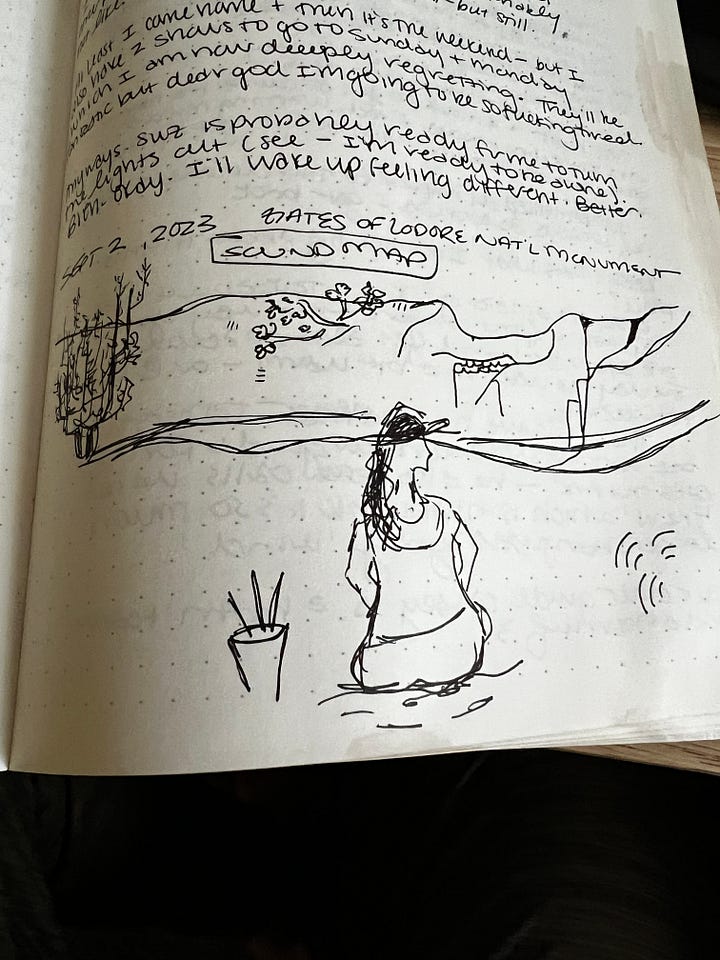 - but still.
least I came home + then it's the weekend - but I
also have 2 shows to go to Sunday + Monday
which I am now deeply regretting. They'll be
but dear god I'm going to be so fucking tired.
Anyways. Suz is probably ready for me to turn
the lights out (see - I'm ready to be alone)
okay. I'll wake up feeling different. Better.
SEPT 2, 2023 GATES OF LODORE NAT'L MONUMENT
SOUND MAP